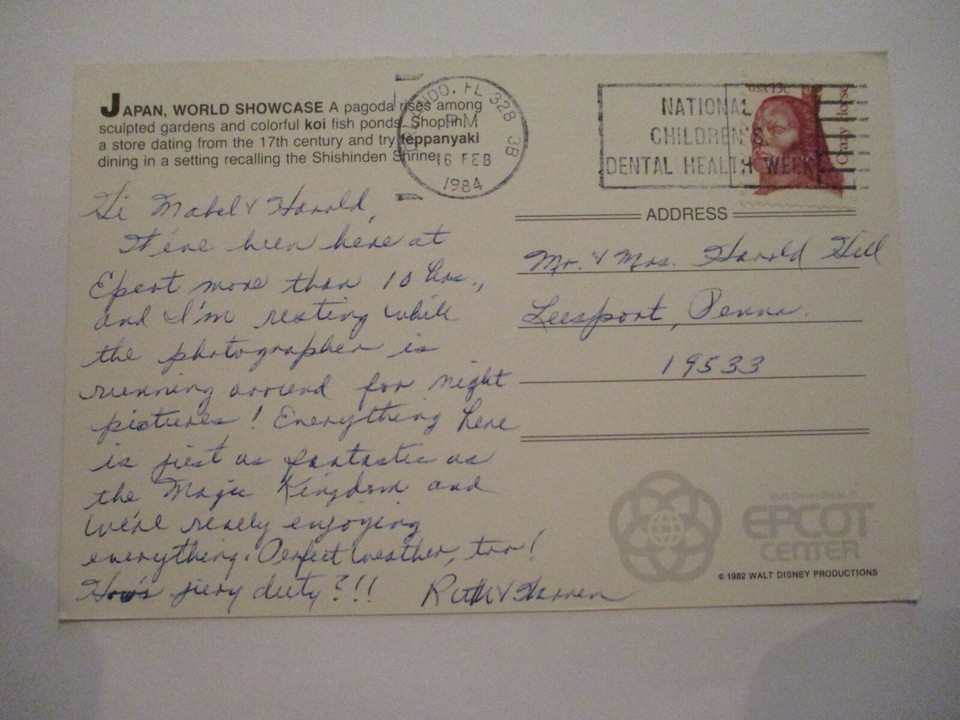 JAPAN, WORLD SHOWCASE A pagoda rises among
sculpted gardens and colorful koi fish ponds. Shop in
a store dating from the 17th century and try teppanyaki
dining in a setting recalling the Shishinden Shrine.
ORLANDO, FL 328
PM
16 FEB
1984
3B
NATIONAL
CHILDREN'S
DENTAL HEALTH WEEK
USA 13c
Crazy Horse
Hi Mabel & Harold,
We've been here at
Epcot more than 10 hrs.,
and I'm resting while
the photographer is
running around for night
pictures! Everything here
is just as fantastic as
the Magic Kingdom and
we're really enjoying
everything. Perfect weather, too!
How's jury duty?!!
Ruth & Warren
ADDRESS
Mr. & Mrs. Harold Hill
Leesport, Penna.
19533
Walt Disney World
EPCOT
CENTER
© 1982 WALT DISNEY PRODUCTIONS